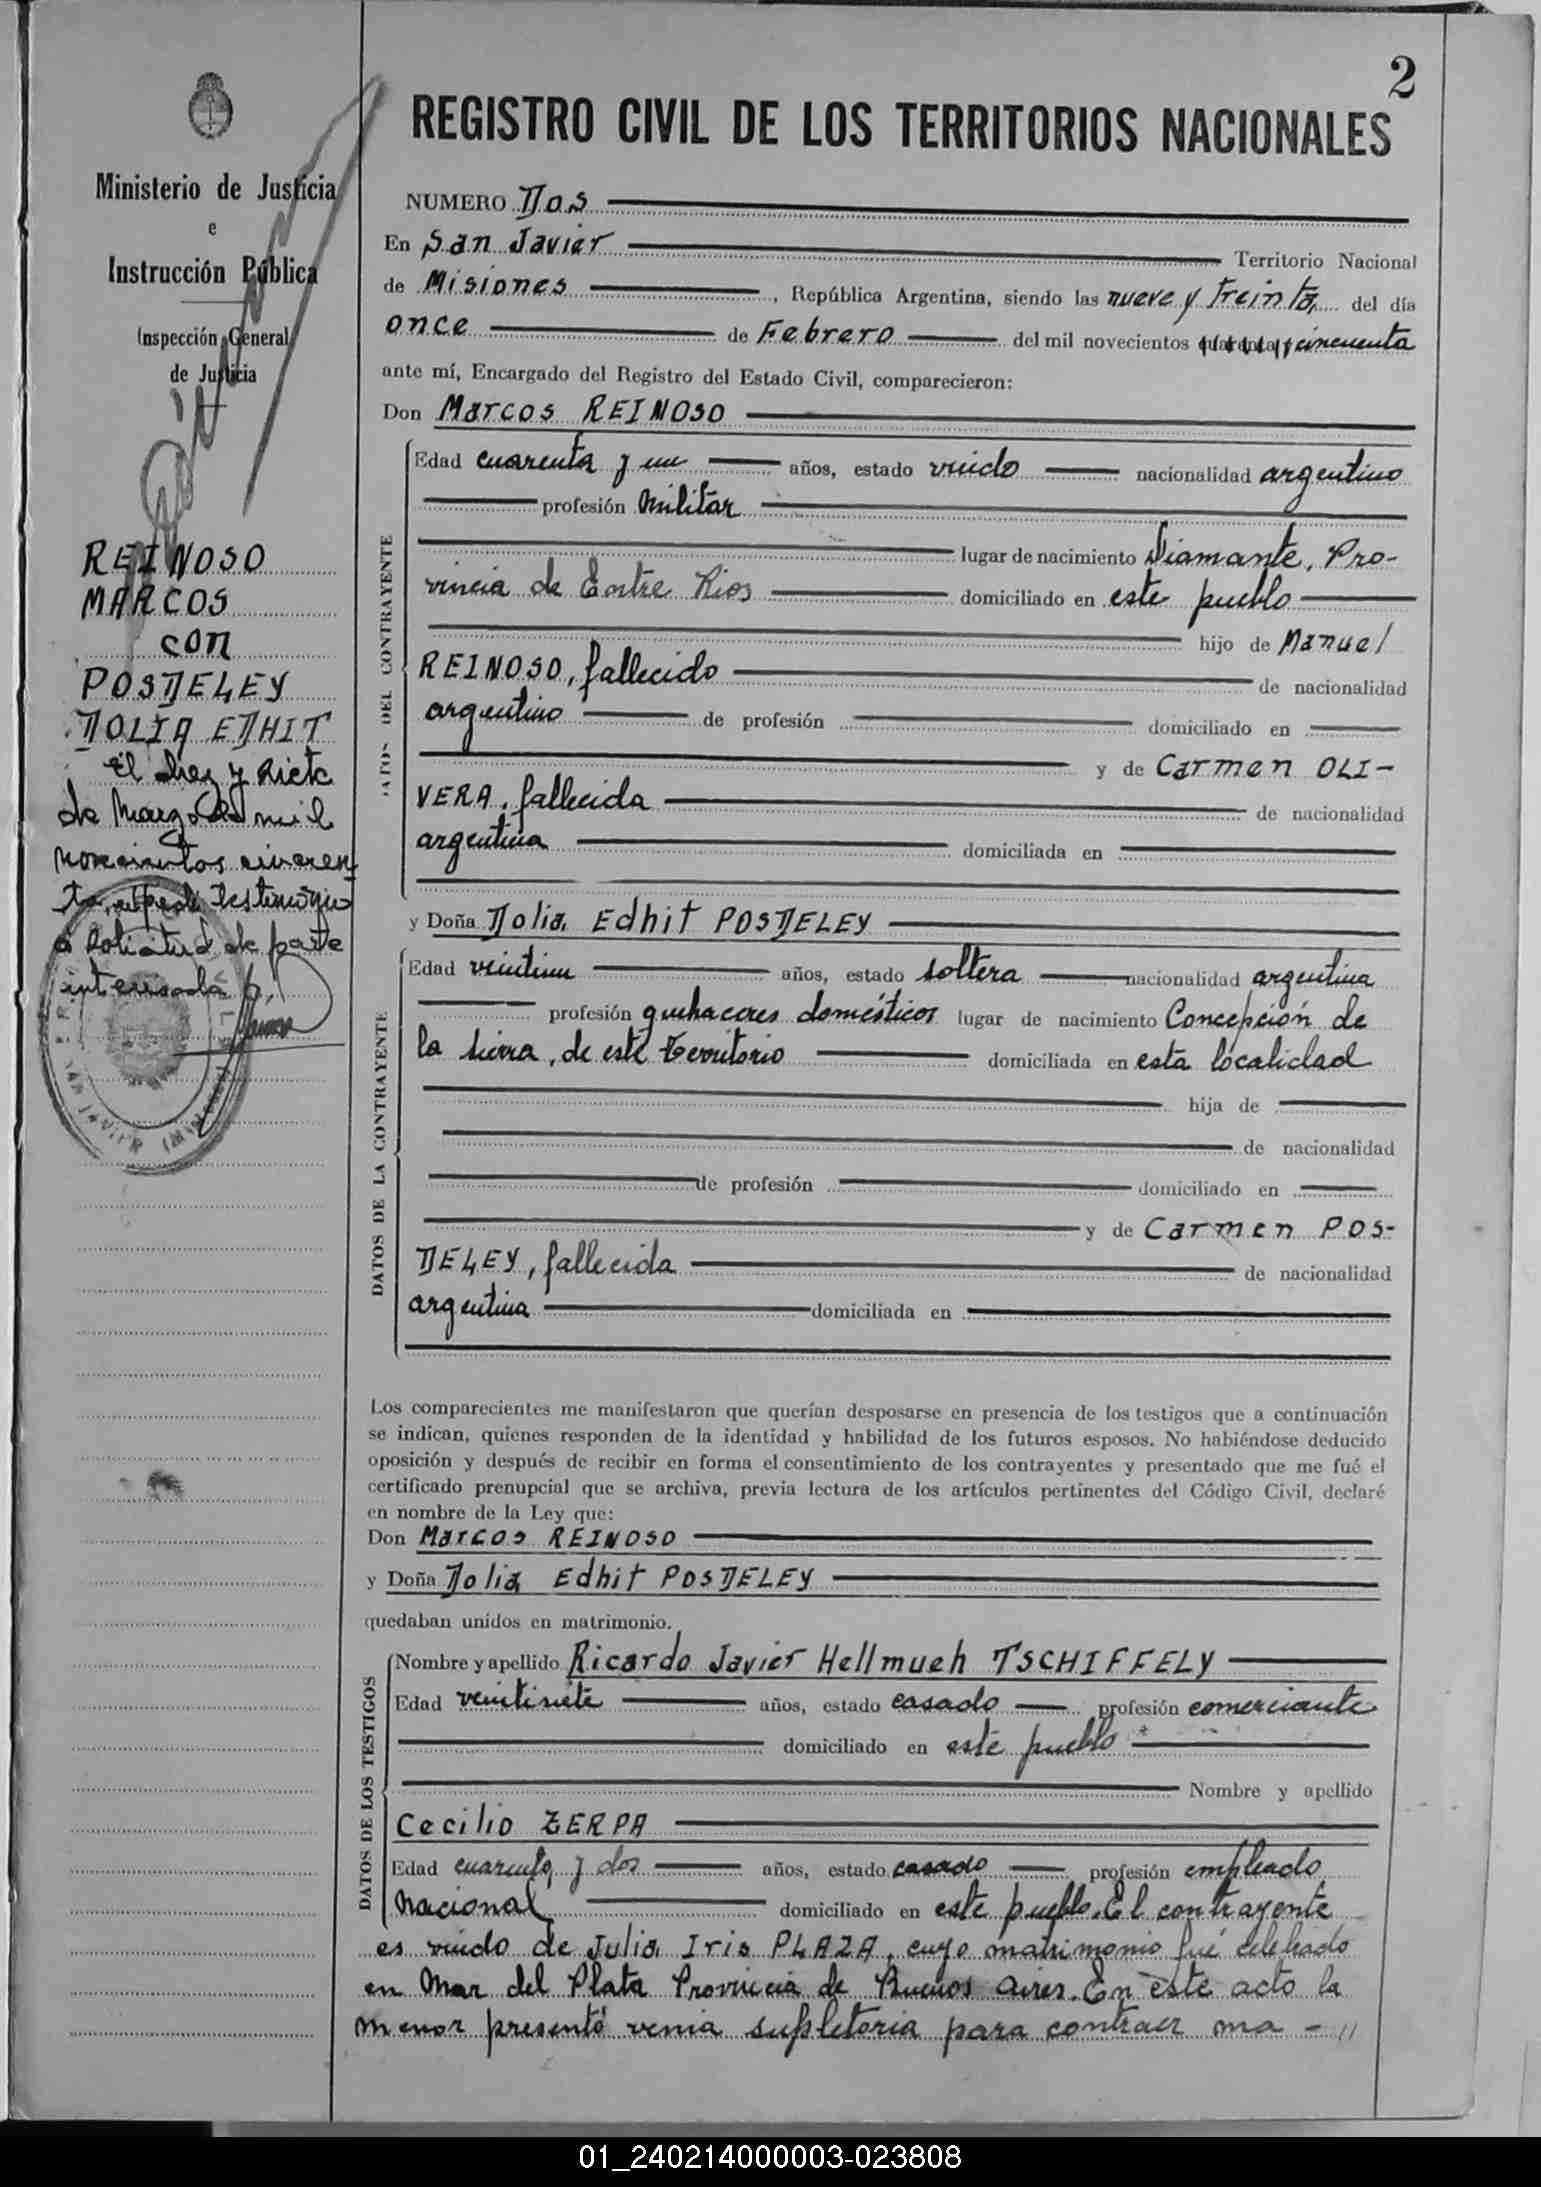 2
Ministerio de Justicia
e
Instrucción Pública
Inspección General
de Justicia
REINOSO
MARCOS
con
POSDELEY
DOLIA EDHIT
El diez y siete
de Marzo de mil
novecientos cincuen
ta, expedí testimonio
a solicitud de parte
interesada
REGISTRO CIVIL DE LOS TERRITORIOS NACIONALES
NUMERO Dos
En San Javier Territorio Nacional
de Misiones , República Argentina, siendo las nueve y treinta, del día
once de Febrero del mil novecientos cincuenta
ante mí, Encargado del Registro del Estado Civil, comparecieron:
Don Marcos REINOSO
DATOS DEL CONTRAYENTE
Edad cuarenta y un años, estado viudo nacionalidad argentino
profesión Militar
lugar de nacimiento Diamante, Pro-
vincia de Entre Rios domiciliado en este pueblo
hijo de Manuel
REINOSO, fallecido de nacionalidad
argentino de profesión domiciliado en
y de Carmen OLI-
VERA, fallecida de nacionalidad
argentina domiciliada en
y Doña Dolia Edhit POSDELEY
DATOS DE LA CONTRAYENTE
Edad veintiun años, estado soltera nacionalidad argentina
profesión quehaceres domésticos lugar de nacimiento Concepción de
la Sierra, de este Territorio domiciliada en esta localidad
hija de
de nacionalidad
de profesión domiciliado en
y de Carmen POS-
DELEY, fallecida de nacionalidad
argentina domiciliada en
Los comparecientes me manifestaron que querían desposarse en presencia de los testigos que a continuación
se indican, quienes responden de la identidad y habilidad de los futuros esposos. No habiéndose deducido
oposición y después de recibir en forma el consentimiento de los contrayentes y presentado que me fué el
certificado prenupcial que se archiva, previa lectura de los artículos pertinentes del Código Civil, declaré
en nombre de la Ley que:
Don Marcos REINOSO
y Doña Dolia Edhit POSDELEY
quedaban unidos en matrimonio.
DATOS DE LOS TESTIGOS
Nombre y apellido Ricardo Javier Hellmueh TSCHIFFELY
Edad veintisiete años, estado casado profesión comerciante
domiciliado en este pueblo
Nombre y apellido
Cecilio ZERPA
Edad cuarenta y dos años, estado casado profesión empleado
Nacional domiciliado en este pueblo. El contrayente
es viudo de Julia Iris PLAZA, cuyo matrimonio fué celebrado
en Mar del Plata Provincia de Buenos Aires. En este acto la
menor presentó venia supletoria para contraer ma - //
01_240214000003-023808